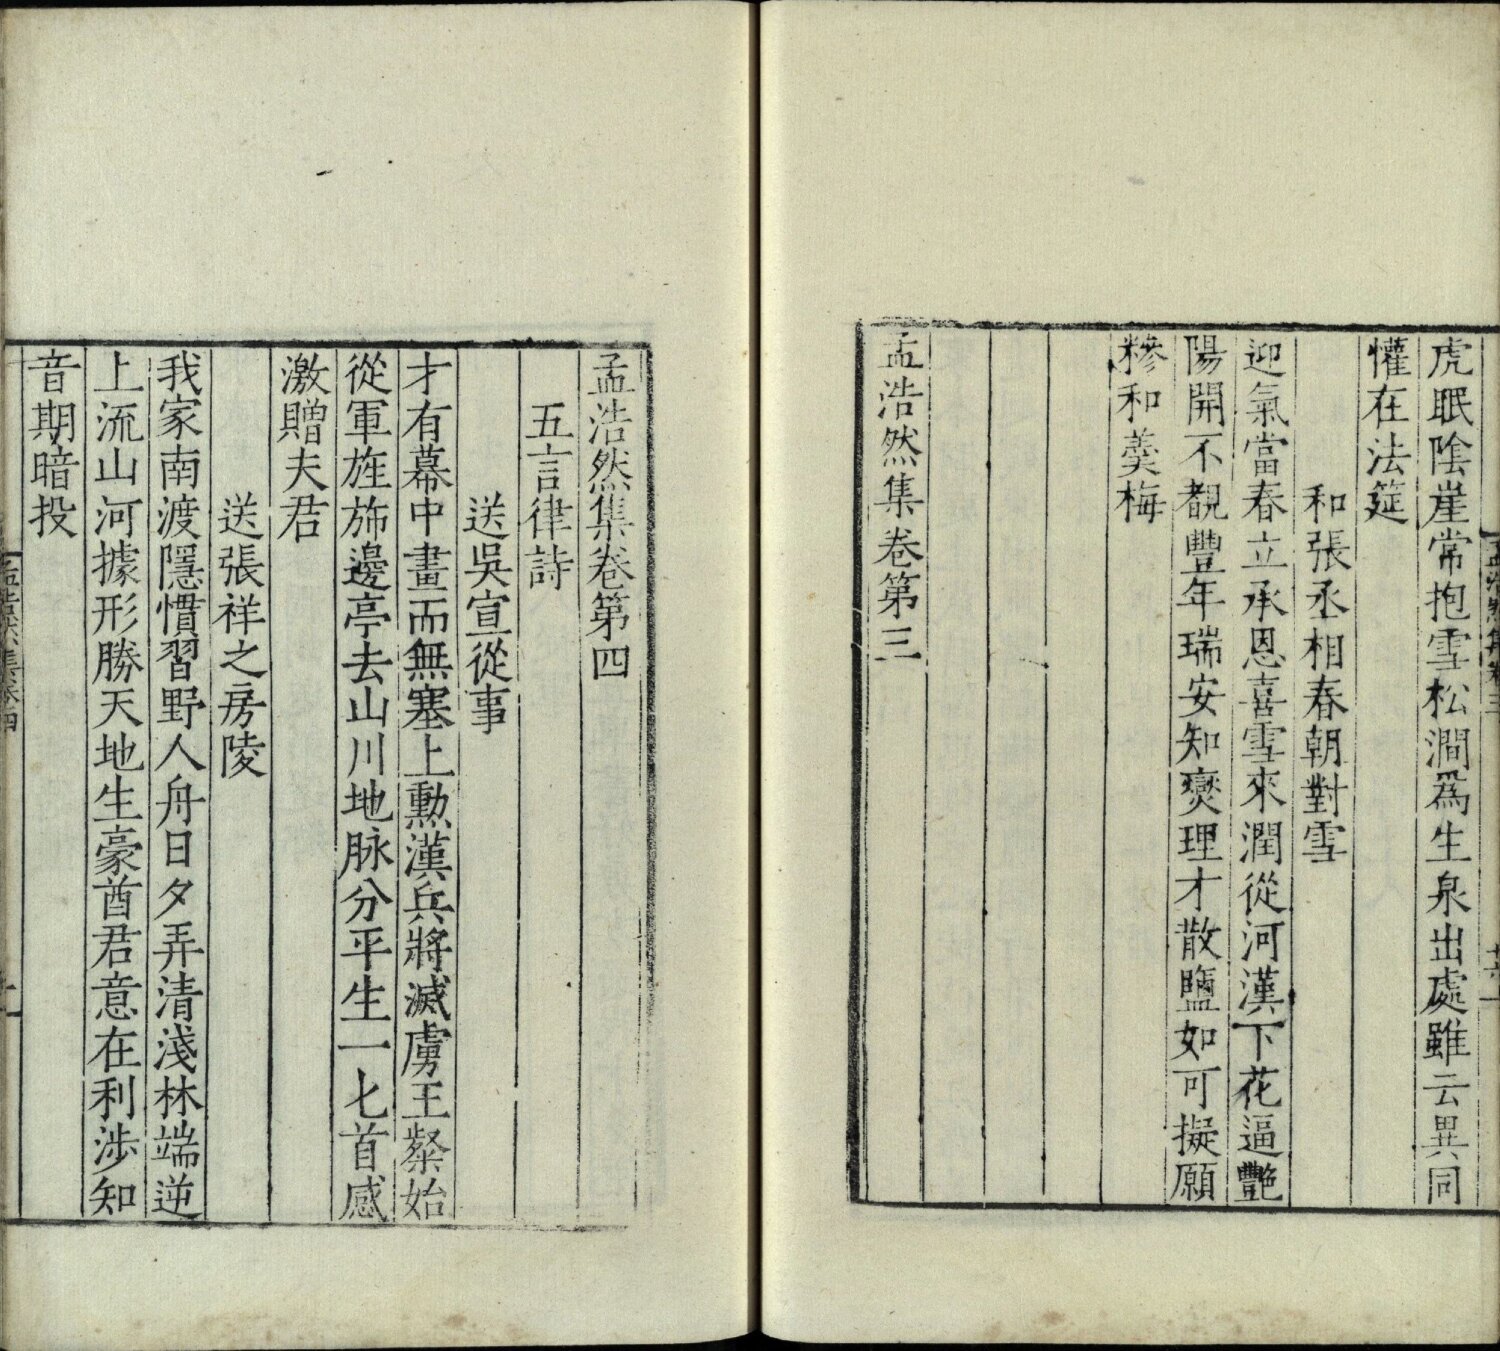 虎眠陰崖常抱雪松澗為生泉出處雖云異同
懽在法筵
和張丞相春朝對雪
迎氣當春立承恩喜雪來潤從河漢下花逼艷
陽開不覩豐年瑞安知爕理才散鹽如可擬願
糝和羹梅
孟浩然集卷第三
孟浩然集卷第四
五言律詩
送吳宣從事
才有幕中畫而無塞上勳漢兵將滅虜王粲始
從軍旌斾邊亭去山川地脉分平生一匕首感
激贈夫君
送張祥之房陵
我家南渡隱慣習野人舟日夕弄清淺林端逆
上流山河據形勝天地生豪酋君意在利涉知
音期暗投